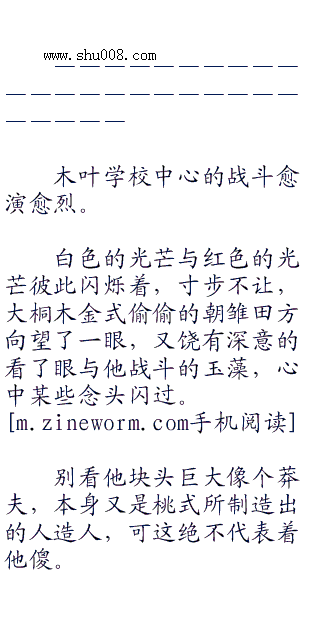 www.shu008.com
＿＿＿＿＿＿＿＿＿＿
＿＿＿＿＿＿＿＿＿＿＿＿
＿＿＿＿＿
木叶学校中心的战斗愈
演愈烈。
白色的光芒与红色的光
芒彼此闪烁着，寸步不让，
大桐木金式偷偷的朝雏田方
向望了一眼，又饶有深意的
看了眼与他战斗的玉藻，心
中某些念头闪过。
[m.zineworm.com手机阅读]
别看他块头巨大像个莽
夫，本身又是桃式所制造出
的人造人，可这绝不代表着
他傻。